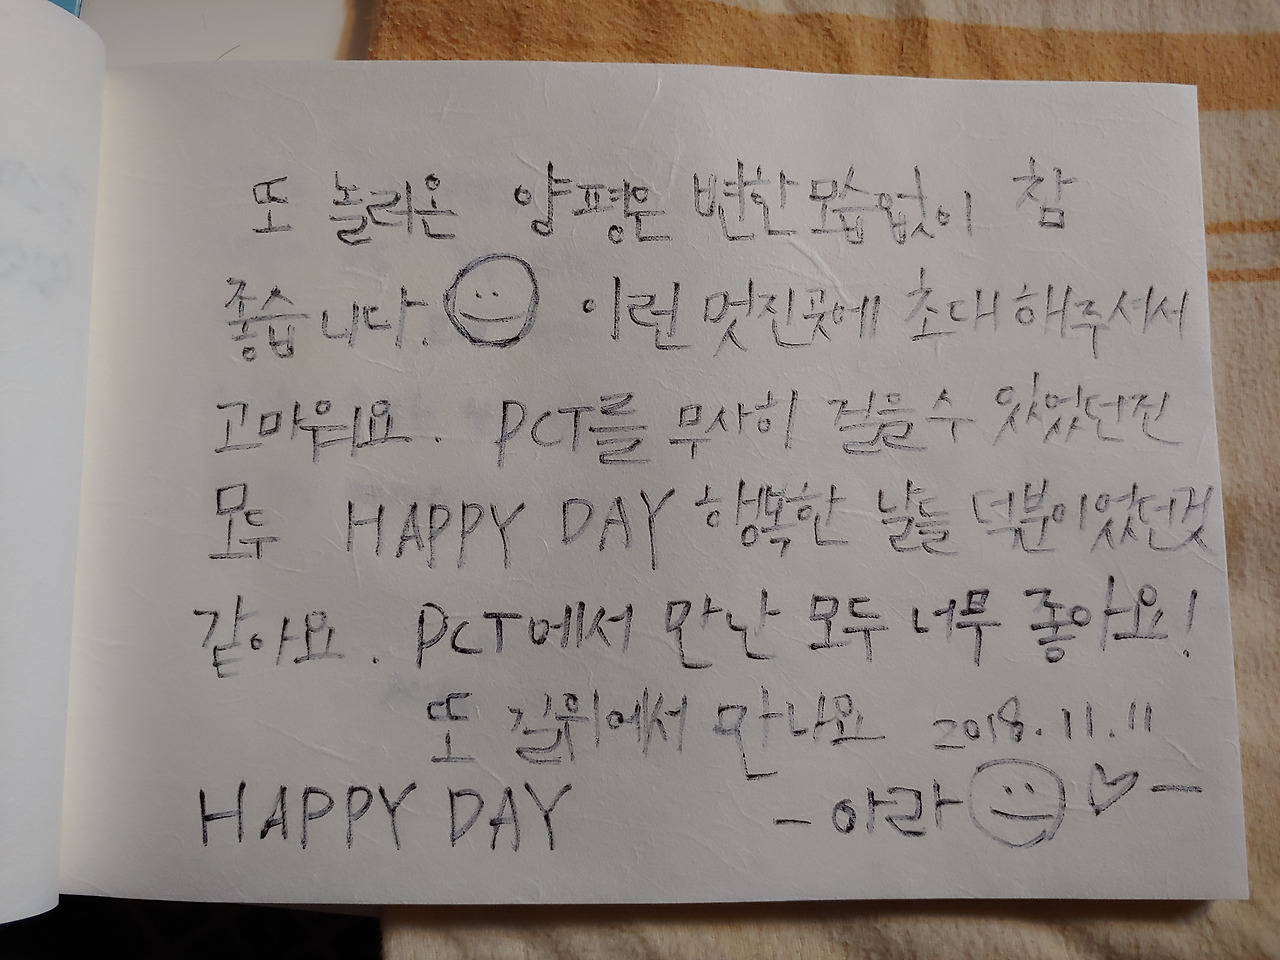 또 놀러온 양평은 변한모습없이 참
좋습니다. 이런 멋진곳에 초대해주셔서
고마워요. PCT를 무사히 걸을수 있었던건
모두 HAPPY DAY 행복한 날들 덕분이었던것
같아요. PCT에서 만난 모두 너무 좋아요!
또 길위에서 만나요 2018.11.11
HAPPY DAY -아라 ♡-